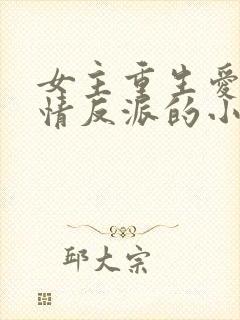 女主重生爱
情反派的小
邱大宗